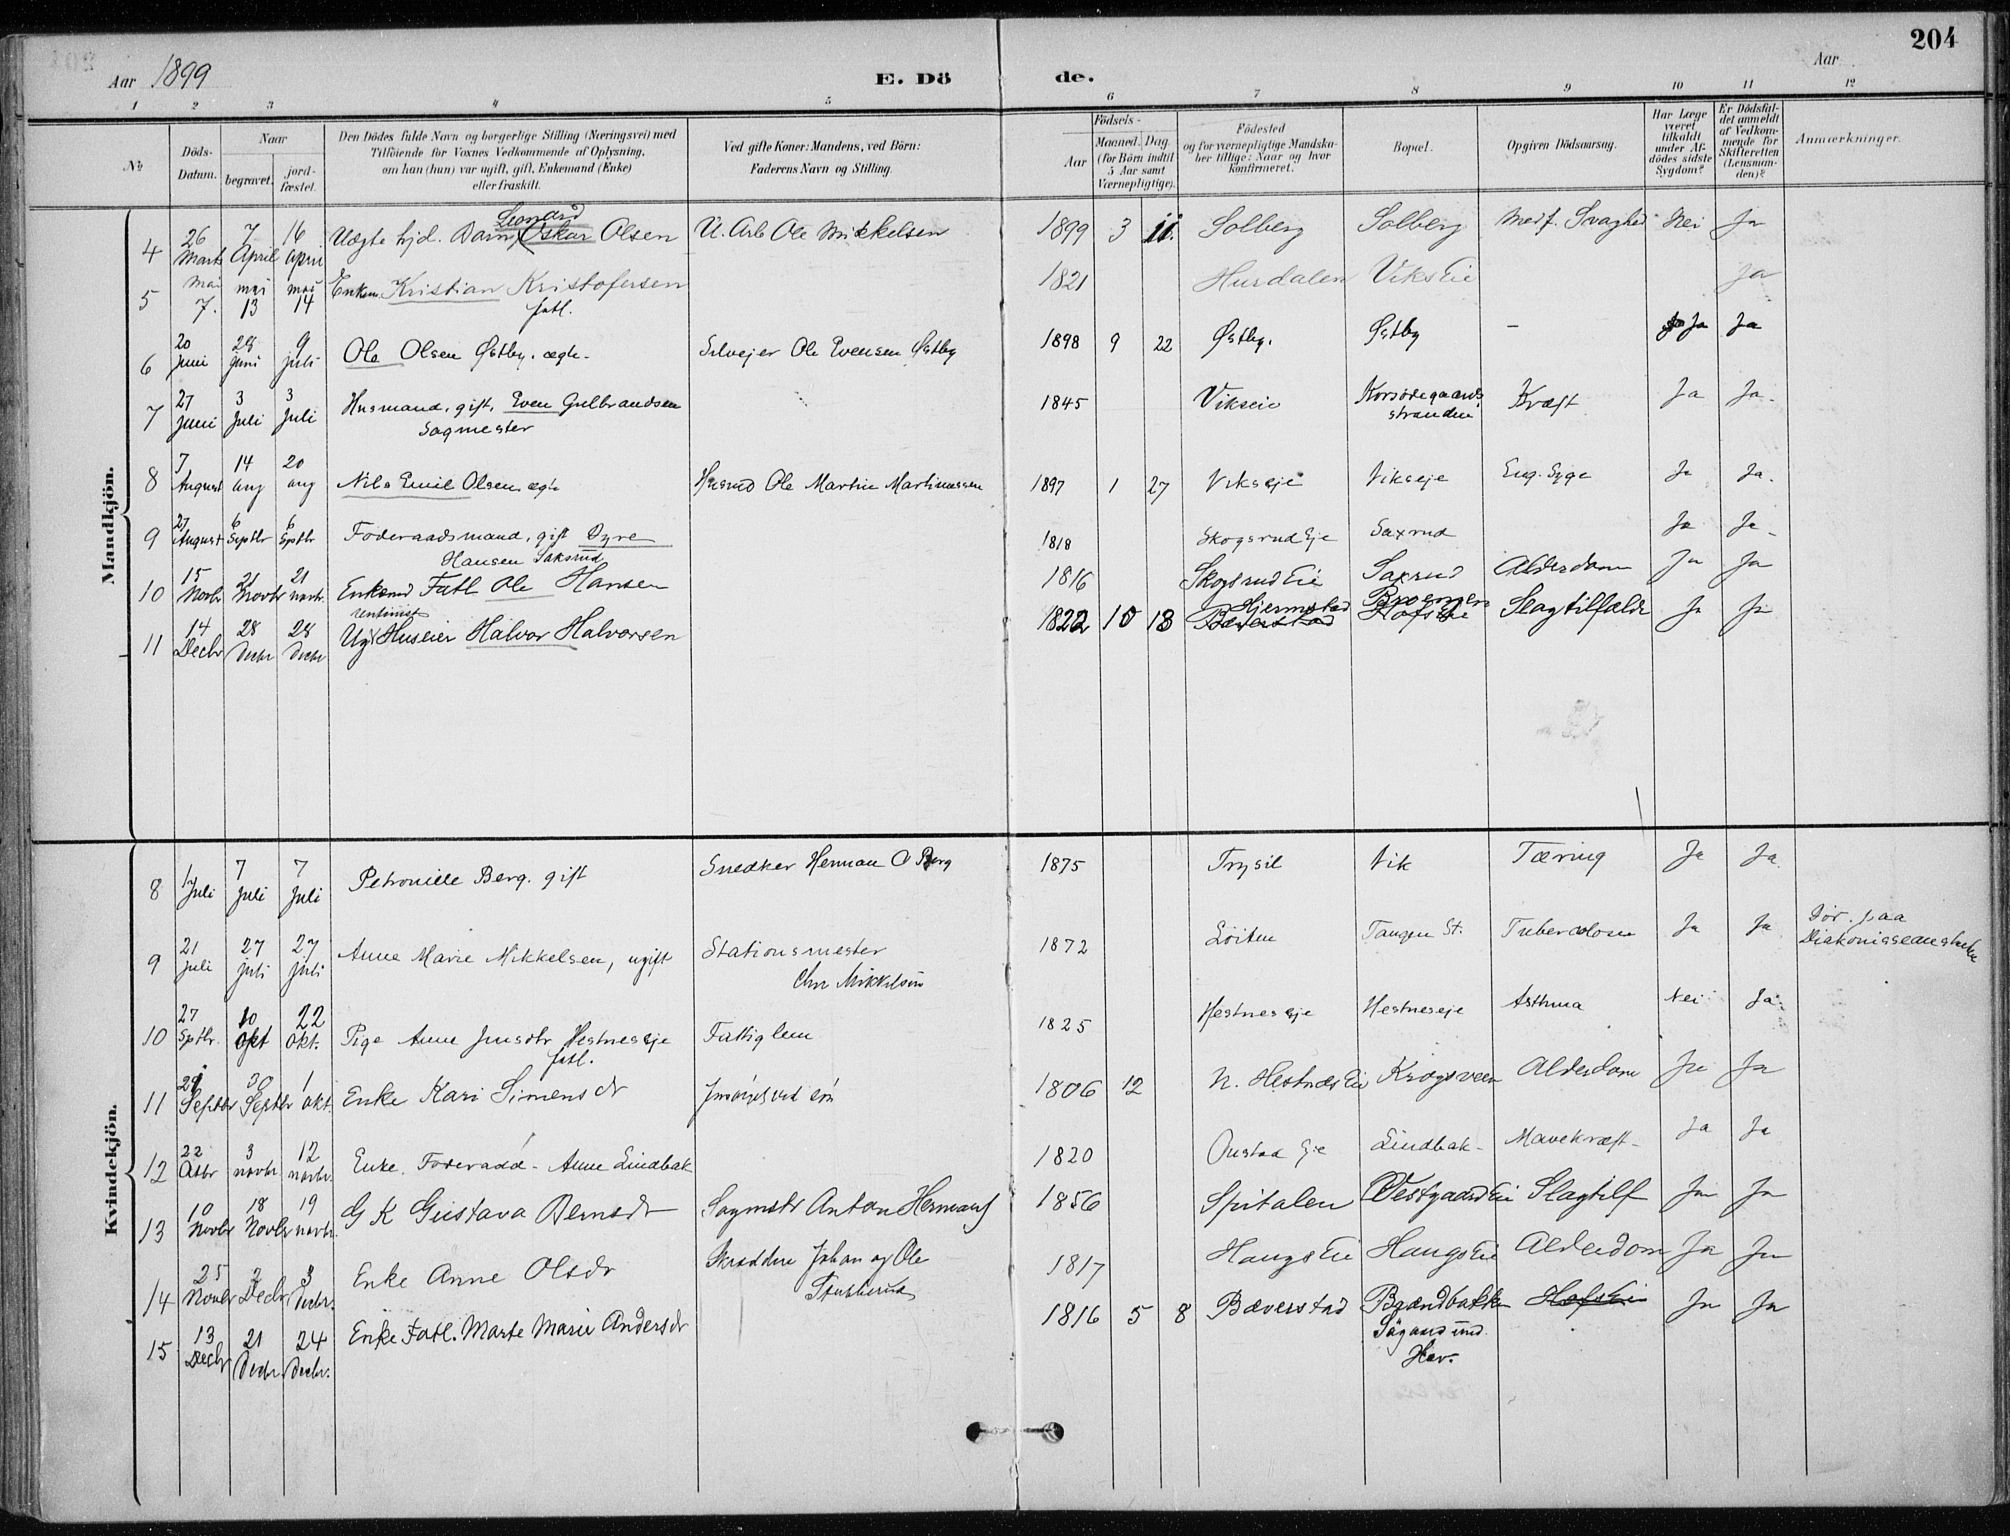 204
Aar 1899
E. Dö de.
Aar
1 2 3 4 5 6 7 8 9 10 11 12
№
Döds-Datum.
Naar
begravet.
jord-fæstet.
Den Dödes fulde Navn og borgerlige Stilling (Næringsvei) med
Tilföiende for Voxnes Vedkommende af Oplysning,
om han (hun) var ugift, gift, Enkemand (Enke)
eller fraskilt.
Ved gifte Koner: Mandens, ved Börn:
Faderens Navn og Stilling.
Födsels-
Aar
Maaned. Dag
(for Börn indtil
5 Aar samt
Værnepligtige).
Födested
og for værnepligtige Mandska-
ber tillige: Naar og hvor
konfirmeret.
Bopæl.
Opgiven Dödsaarsag.
Har Læge
været
tilkaldt
under Af-
dödes sidste
Sygdom?
Er Dödsfal-
det anmeldt
af Vedkom-
mende for
Skifteretten
(Lensman-
den)?
Anmærkninger.
Mandkjön.
4 26 Marts 7 April 16 April Uægte hjd. Barn Leonard Oskar Olsen U. Arb Ole Mikkelsen 1899 3 11. Solberg Solberg Medf. Svaghed Nei Ja
5 Mai 7. mai 13 mai 14 Enkem. Kristian Kristofersen fatl. 1821 Hurdalen Viks Eie Ja
6 20 Juni 28 Juni 9 juli Ole Olsen Østby. ægte. Selvejer Ole Evensen Østby 1898 9 22 Østby. Østby – Ja Ja
7 27 Juni 3 Juli 3 Juli Husmand, gift, Even Gulbrandsen Sagmester 1845 Vikseie Korsødegaards stranden Kræft Ja Ja.
8 7 August 14 aug 20 aug Nils Emil Olsen ægte Husmd Ole Martin Martinussen 1897 1 27 Vikseje Vikseje Eng. Syge Ja Ja.
9 27 August 6 Septbr 6 Sptbr Foderaadsmand, gift Dyre Hansen Saksrud 1818 Skogsrud Eje Saxrud Ja Ja
10 15 Novbr 21 Novbr 21 novbr. Enkemd Fatl Ole Hansen 1816 Skogsrud Eie Saxrud Alderdom Ja Ja
11 14 Decbr 28 Decbr 28 Decbr Ugift rentenist Huseier Halvor Halvorsen 1822 10 18 Hjermstad Bæverstad Hofs Eie Slagtilfælde Ja Ja
Kvindekjön.
8 1 Juli 7 Juli 7 Juli Petronille Berg. gift Snedker Herman O Berg 1875 Trysil Vik Tæring Ja Ja
9 21 Juli 27 Juli 27 Juli Anne Marie Mikkelsen, ugift Stationsmester Chr Mikkelsen 1872 Löiten Tangen St. Tuberculose Ja Ja Dör. paa Diakonisseanstalten
10 27 Sptbr. 10 Okt 22 Okt. Pige Anne Jensdtr Hestneseje fatl. Fattiglem 1825 Hestneseje Hestneseje Asthma Nei Ja
11 Septbr 30 Septbr 1 okt. Enke Kari Simensdr 1806 12 N. Hestnæs Eie Krogsveen Alderdom Ja Ja
12 22 Otbr 3 novbr 12 novbr. Enke. Foderaad - Anne Lindbak 1820 Onstad Eje Lindbak - Mavekræft - Ja Ja
13 10 Novbr 18 Novbr 19 novbr. G K Gustava Berntsdr Sagmstr Anton Hermans 1856 Spitalen Vestgaard Eie Slagtilf Ja Ja
14 25 Novbr 2 Decbr 3 Decbr. Enke Anne Olsdr Skrædder Johan og Ole 1817 Haugs Eie Haugs Eie Alderdom Ja Ja
15 13 Decbr 21 Decbr 24 Decbr. Enke Fatl. Marte Marie Andersdr 1816 5 8 Bæverstad Brændbakke Hofs Eie Ja Ja